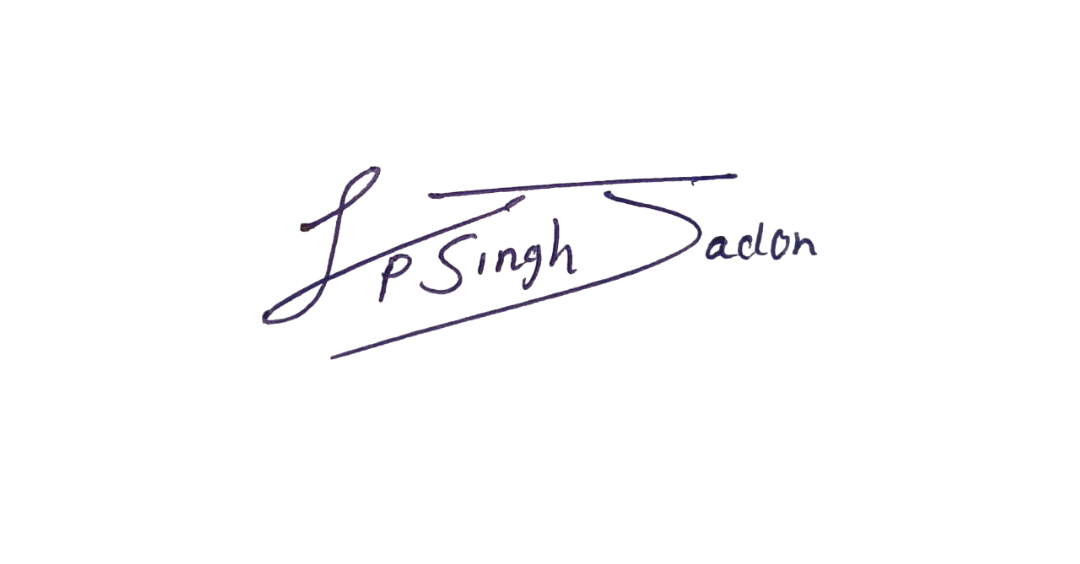 LP Singh Jadon